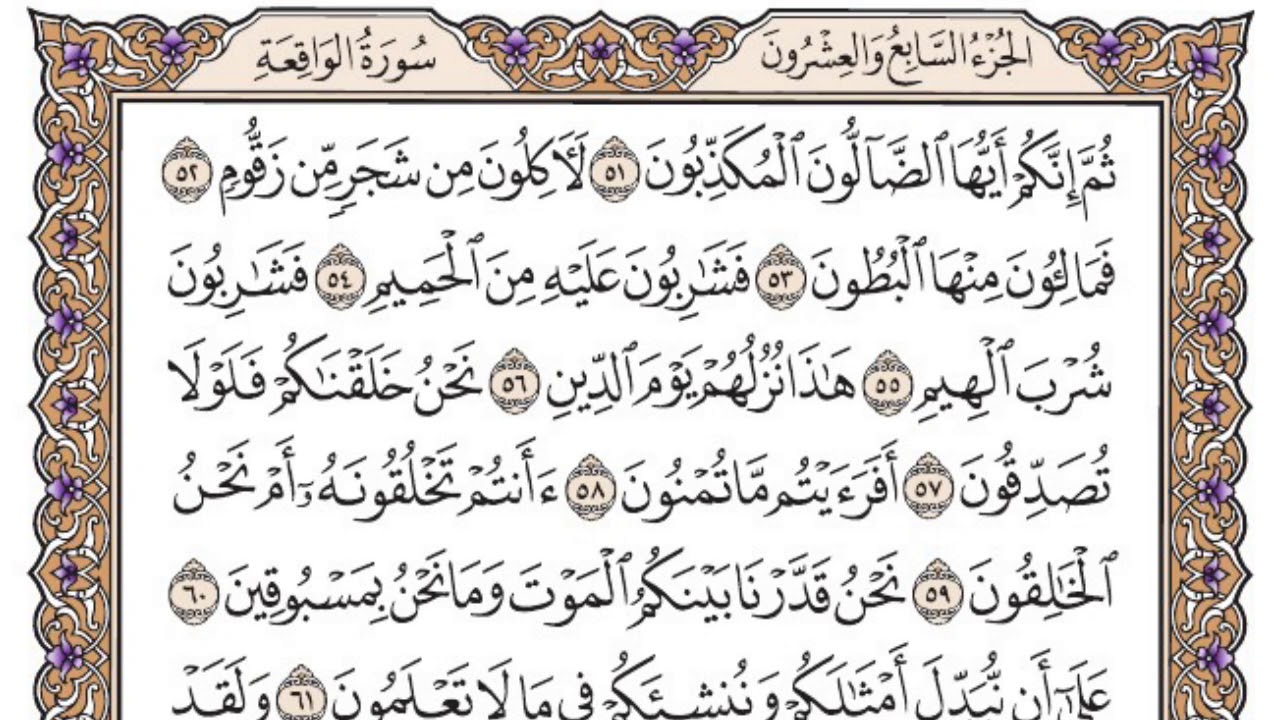 الجُزْءُ السَّابِعُ وَالعِشْرُونَ
سُورَةُ الوَاقِعَةِ
ثُمَّ إِنَّكُمْ أَيُّهَا ٱلضَّآلُّونَ ٱلْمُكَذِّبُونَ ٥١ لَـَٔاكِلُونَ مِن شَجَرٍ مِّن زَقُّومٍ ٥٢
فَمَالِـُٔونَ مِنْهَا ٱلْبُطُونَ ٥٣ فَشَٰرِبُونَ عَلَيْهِ مِنَ ٱلْحَمِيمِ ٥٤ فَشَٰرِبُونَ
شُرْبَ ٱلْهِيمِ ٥٥ هَٰذَا نُزُلُهُمْ يَوْمَ ٱلدِّينِ ٥٦ نَحْنُ خَلَقْنَٰكُمْ فَلَوْلَا
تُصَدِّقُونَ ٥٧ أَفَرَءَيْتُم مَّا تُمْنُونَ ٥٨ ءَأَنتُمْ تَخْلُقُونَهُۥٓ أَمْ نَحْنُ
ٱلْخَٰلِقُونَ ٥٩ نَحْنُ قَدَّرْنَا بَيْنَكُمُ ٱلْمَوْتَ وَمَا نَحْنُ بِمَسْبُوقِينَ ٦٠
عَلَىٰٓ أَن نُّبَدِّلَ أَمْثَٰلَكُمْ وَنُنشِئَكُمْ فِي مَا لَا تَعْلَمُونَ ٦١ وَلَقَدْ